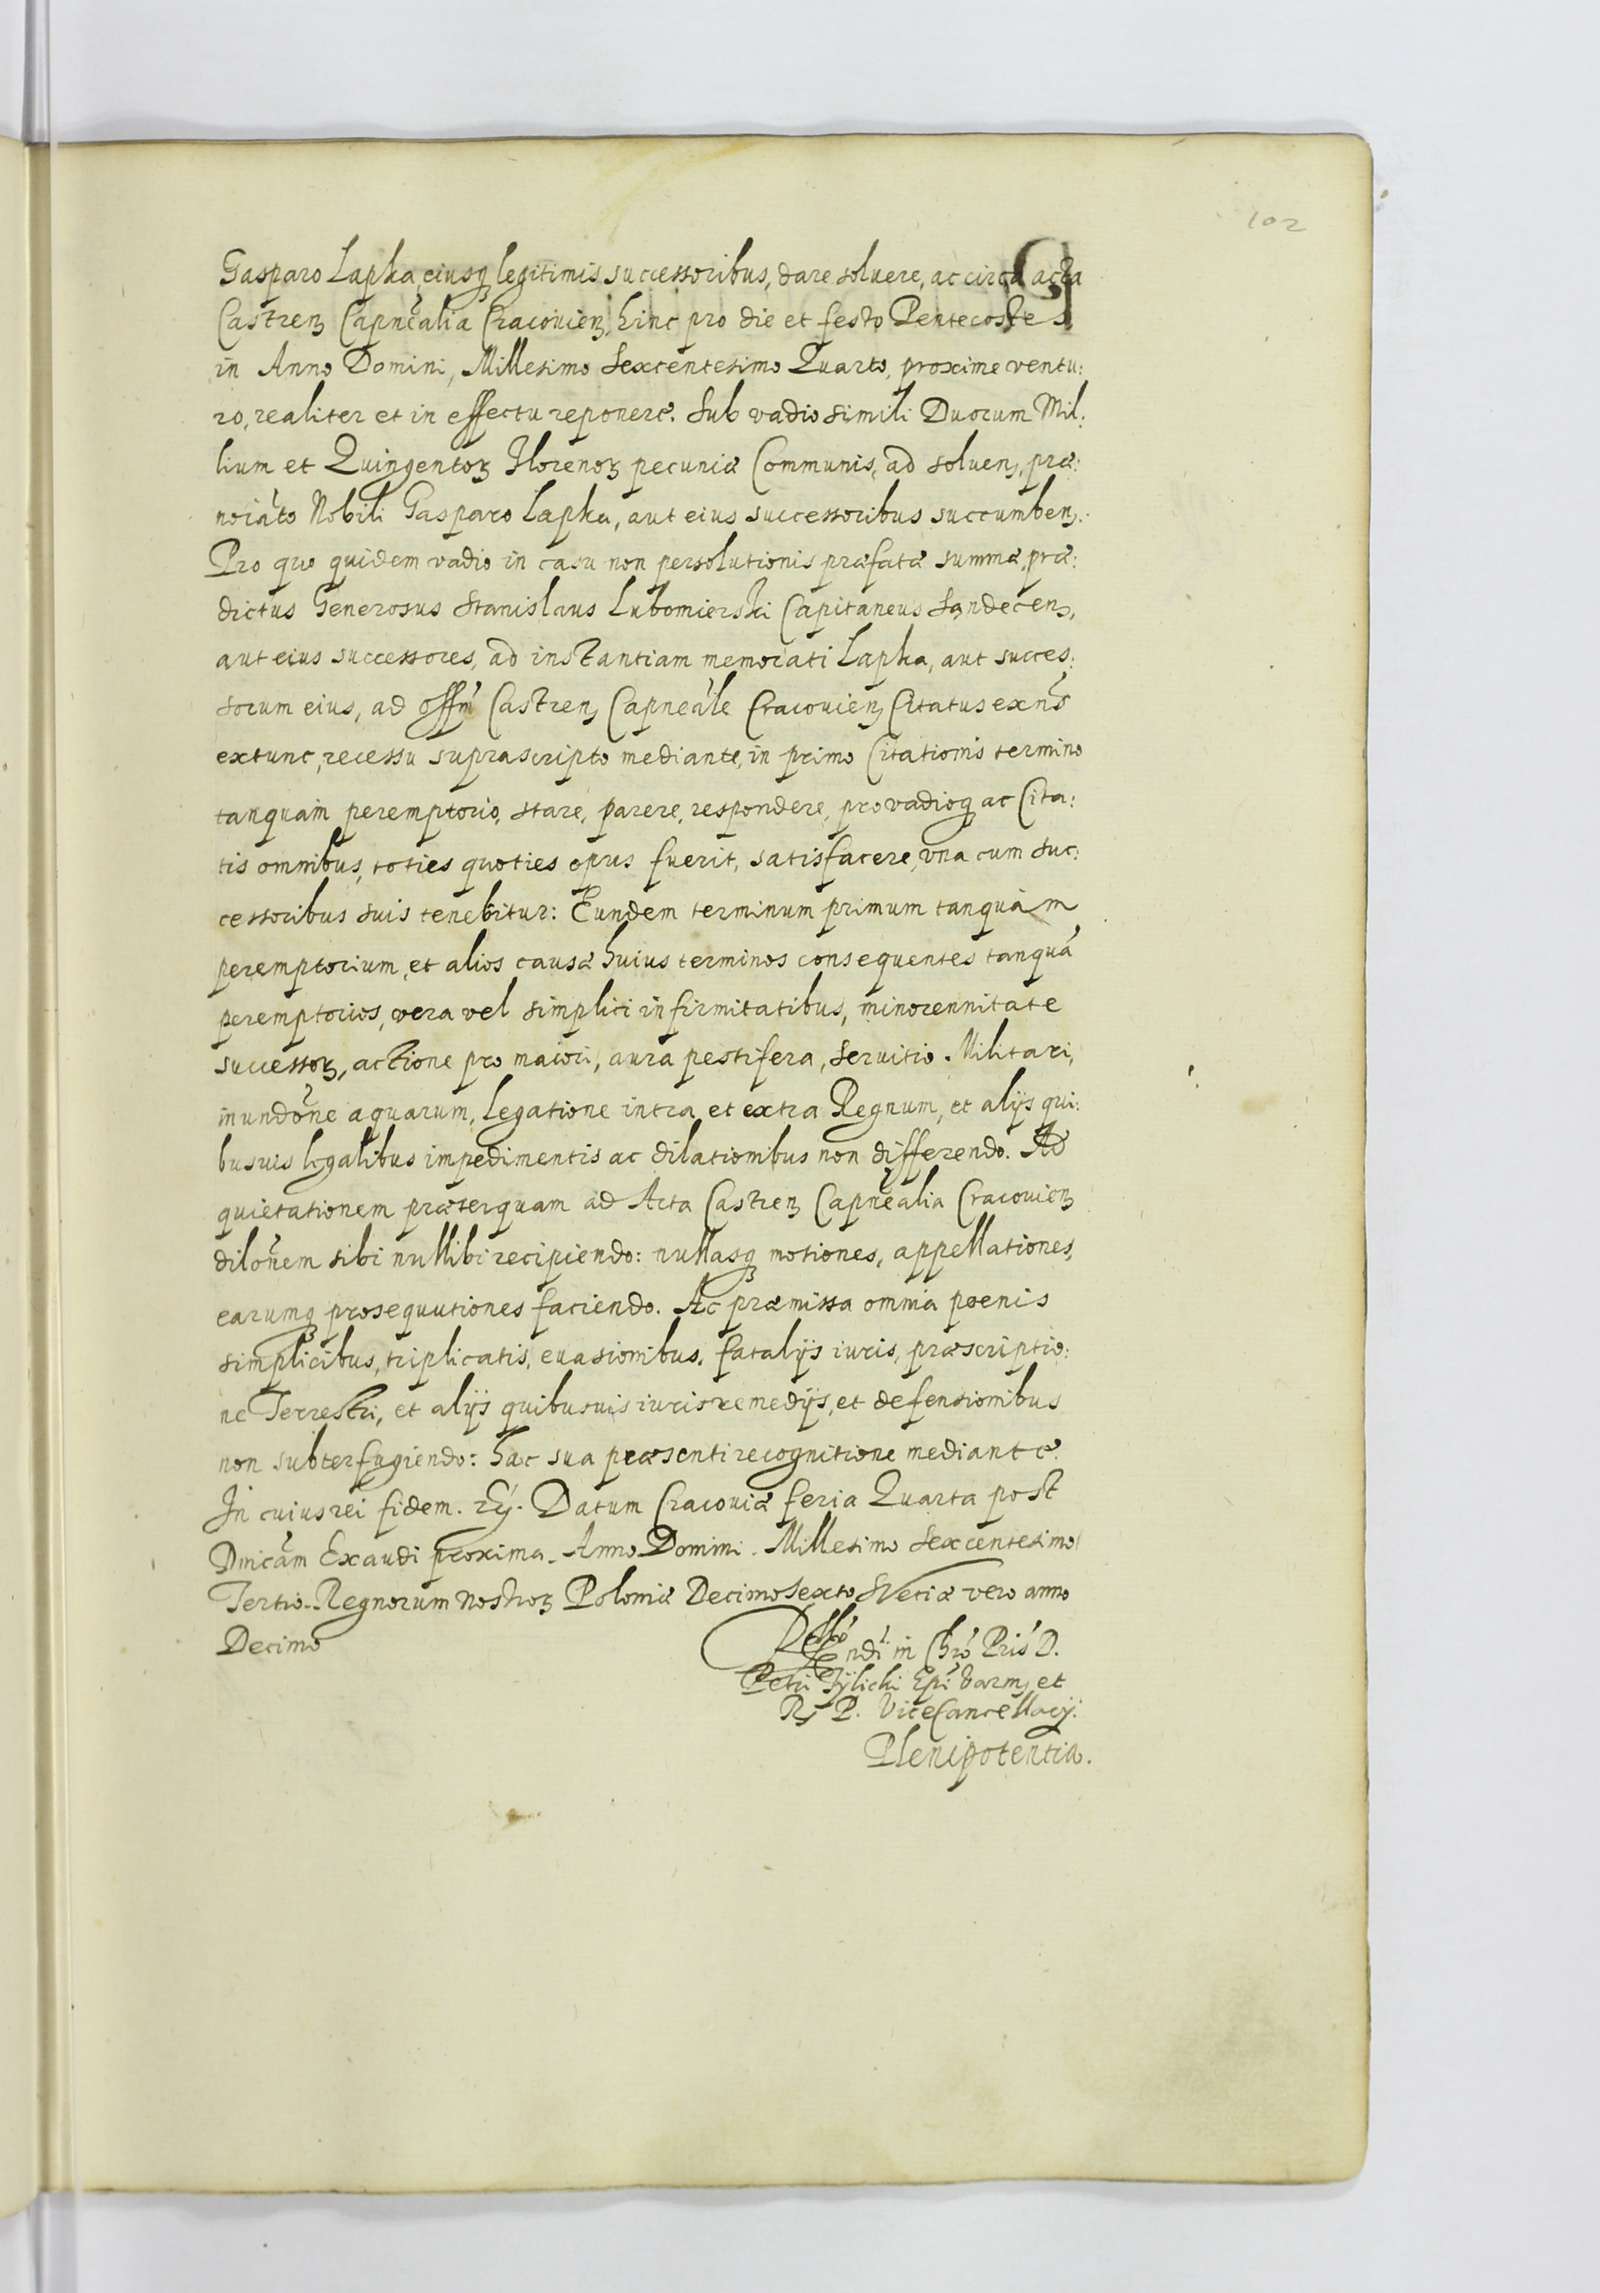 102
Gasparo Lapka, eiusq₃ legitimis successoribus, dare soluere, ac circa acta
Castren₃ Capnéalia Cracouien₃, hinc pro die et festo Pentecostes
in Anno Domini, Millesimo Sexcentesimo Quarto, proxime ventu:
ro, realiter et in effectu reponere. Sub vadio simili Duorum Mil:
lium et Quingentoꝝ Florenoꝝ pecuniæ Communis, ad soluen₃, præ:
noiáto Nobili Gasparo Lapka, aut eius successoribus succumben₃.
Pro quo quidem vadio in casu non persolutionis præfatæ summæ, præ:
dictus Generosus Stanislaus Lubomierski Capitaneus Sandecen₃,
aut eius successores, ad instantiam memorati Lapka, aut succes:
sorum eius, ad offm̃ Castren₃ Capneále Cracouien₃ Citatus exńc
extunc, recessu suprascripto mediante, in primo Citationis termino
tanquam peremptorio, stare, parere, respondere, pro vadioq₃ ac Cita:
tis omnibus, toties quoties opus fuerit, satisfacere, vna cum suc:
cessoribus suis tenebitur: Eundem terminum primum tanquàm
peremptorium, et alios causæ huius terminos consequentes tanquá
peremptorios, vera vel simplici infirmitatibus, minorennitate
successoꝝ, actione pro maiori, aura pestifera, seruitio Militari,
inundóne aquarum, legatione intra et extra Regnum, et alijs qui:
busuis legalibus impedimentis ac dilationibus non differendo. Ad
quietationem præterquam ad Acta Castren₃ Capnéalia Cracouien₃
dilónem sibi nullibi recipiendo: nullasq₃ motiones, appellationes,
earumq₃ prosequutiones faciendo. Ac præmissa omnia poenis
simplicibus, triplicatis, euasionibus, fatalijs iuris, præscriptio:
ne Terrestri, et alijs quibusuis iuris remedijs, et defensionibus
non subterfugiendo: hac sua præsenti recognitione mediante.
In cuius rei fidem. Datum Cracouiæ feria Quarta post
Dnicám Exaudi proxima. Anno Domini. Millesimo Sexcentesimo
Tertio. Regnorum nostroꝝ Poloniæ Decimosexto Sveciæ vero anno
Decimo
ndi in Chró Pris D.
Petri Tylicki Epi Varm₃ et
R₃ P. ViceCancellarij.
Plenipotentia.